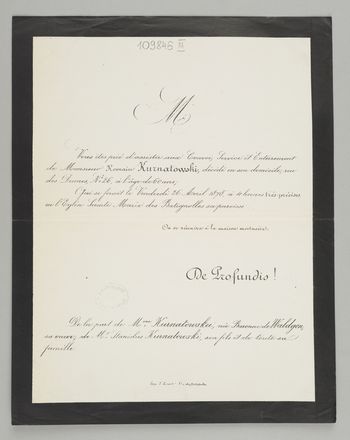 109846 III
M
Vous êtes prié d'assister aux Convoi, Service et Enterrement
de Monsieur Romain Kurnatowski, décédé en son domicile, rue
des Dames, Nº 26, à l'âge de 60 ans;
Qui se feront le Vendredi 26 Avril 1878, à heures très-précises
en l'Eglise Sainte Marie des Batignolles sa paroisse
On se réunira à la maison mortuaire.
De Profundis!
De la part de Mme Kurnatowska, née Baronne de Waldgen,
sa veuve, de Mr Stanislas Kurnatowski, son fils et de toute sa
famille